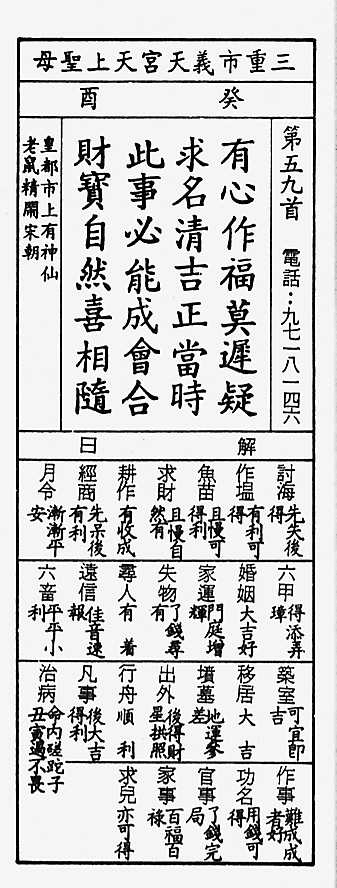 三重市義天宮天上聖母
癸酉
第五九首 電話：九七一八一四六
有心作福莫遲疑
求名清吉正當時
此事必能成會合
財寶自然喜相隨
皇都市上有神仙
老鼠精鬧宋朝
解曰
討海 先失後得
作塭 有利可得
魚苗 且慢可得利
求財 且慢自然有
耕作 有收成
經商 先呆後有利
月令 漸漸平安
六甲 得添弄璋
婚姻 大吉好
家運 門庭增輝
失物 了錢尋有
尋人 有着
遠信 佳音速報
六畜 平平小利
築室 可宜即吉
移居 大吉
墳墓 地運參差
出外 後得財星拱照
行舟 順利
凡事 後大吉得利
治病 命內磋跎子丑寅過不畏
作事 難成成者好
功名 用錢可得
官事 了錢完局
家事 百福百祿
求兒 亦可得